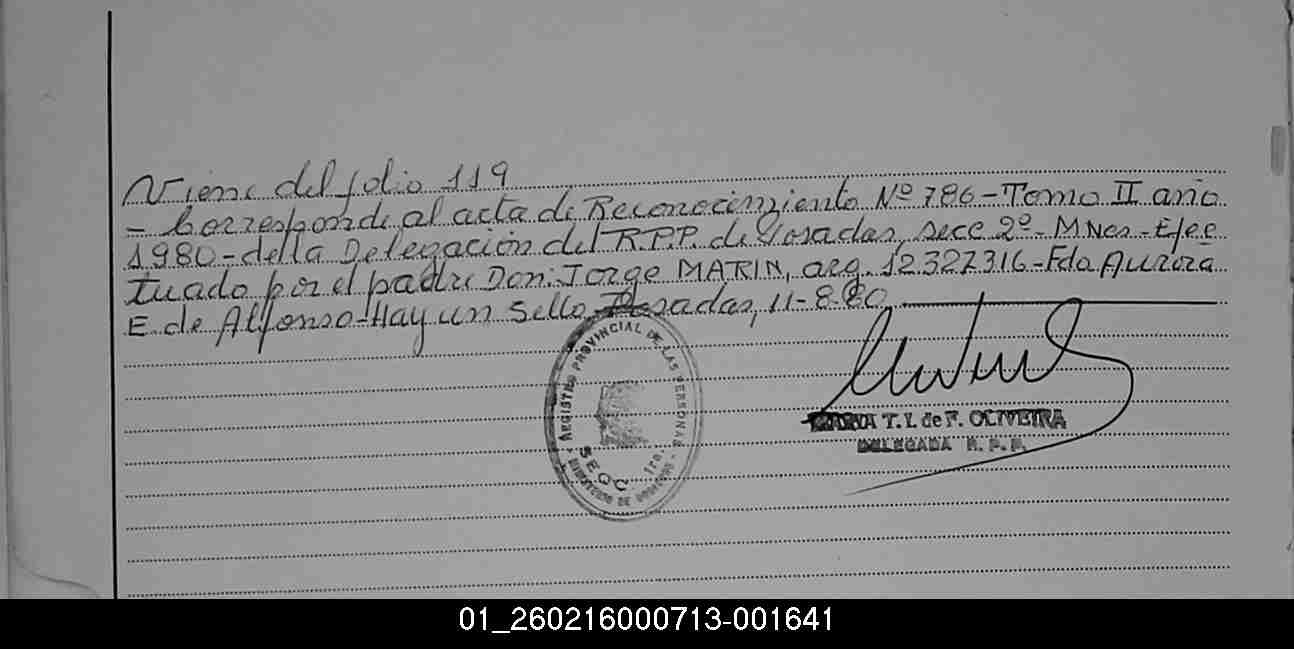 Viene del folio 119
- Corresponde al acta de Reconocimiento Nº 786 - Tomo II año
1980 - della Delegación del R.P.P. de Posadas, secc 2º - MNes - Efec
tuado por el padre Don: Jorge MARIN, arg. 12327316 - Fdo Aurora
E. de Alfonso - Hay un Sello - Posadas, 11-8-80
REGISTRO PROVINCIAL DE LAS PERSONAS
SECC. 1ra.
MINISTERIO DE GOBIERNO
MARIA T. I. de F. OLIVEIRA
DELEGADA R. P. P.
01_260216000713-001641